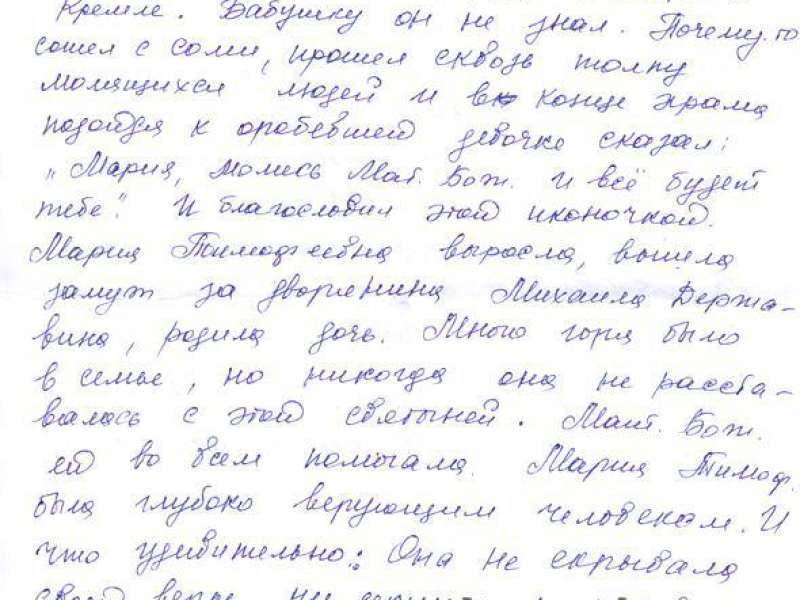 Кремле. Бабушку он не знал. Почему-то
сошел с соми, прошел сквозь толпу
молящихся людей и в конце храма
подойдя к оробевшей девочке сказал:
„Мария, молись Мат. Бож. и всё будет
тебе." И благословил этой иконочкой.
Мария Тимофеевна выросла, вышла
замуж за дворянина Михаила Держа-
вина, родила дочь. Много горя было
в семье, но никогда она не расста-
валась с этой святыней. Мат. Бож.
ей во всем помогала. Мария Тимоф.
была глубоко верующим человеком. И
что удивительно: Она не скрывала
своей веры, ни